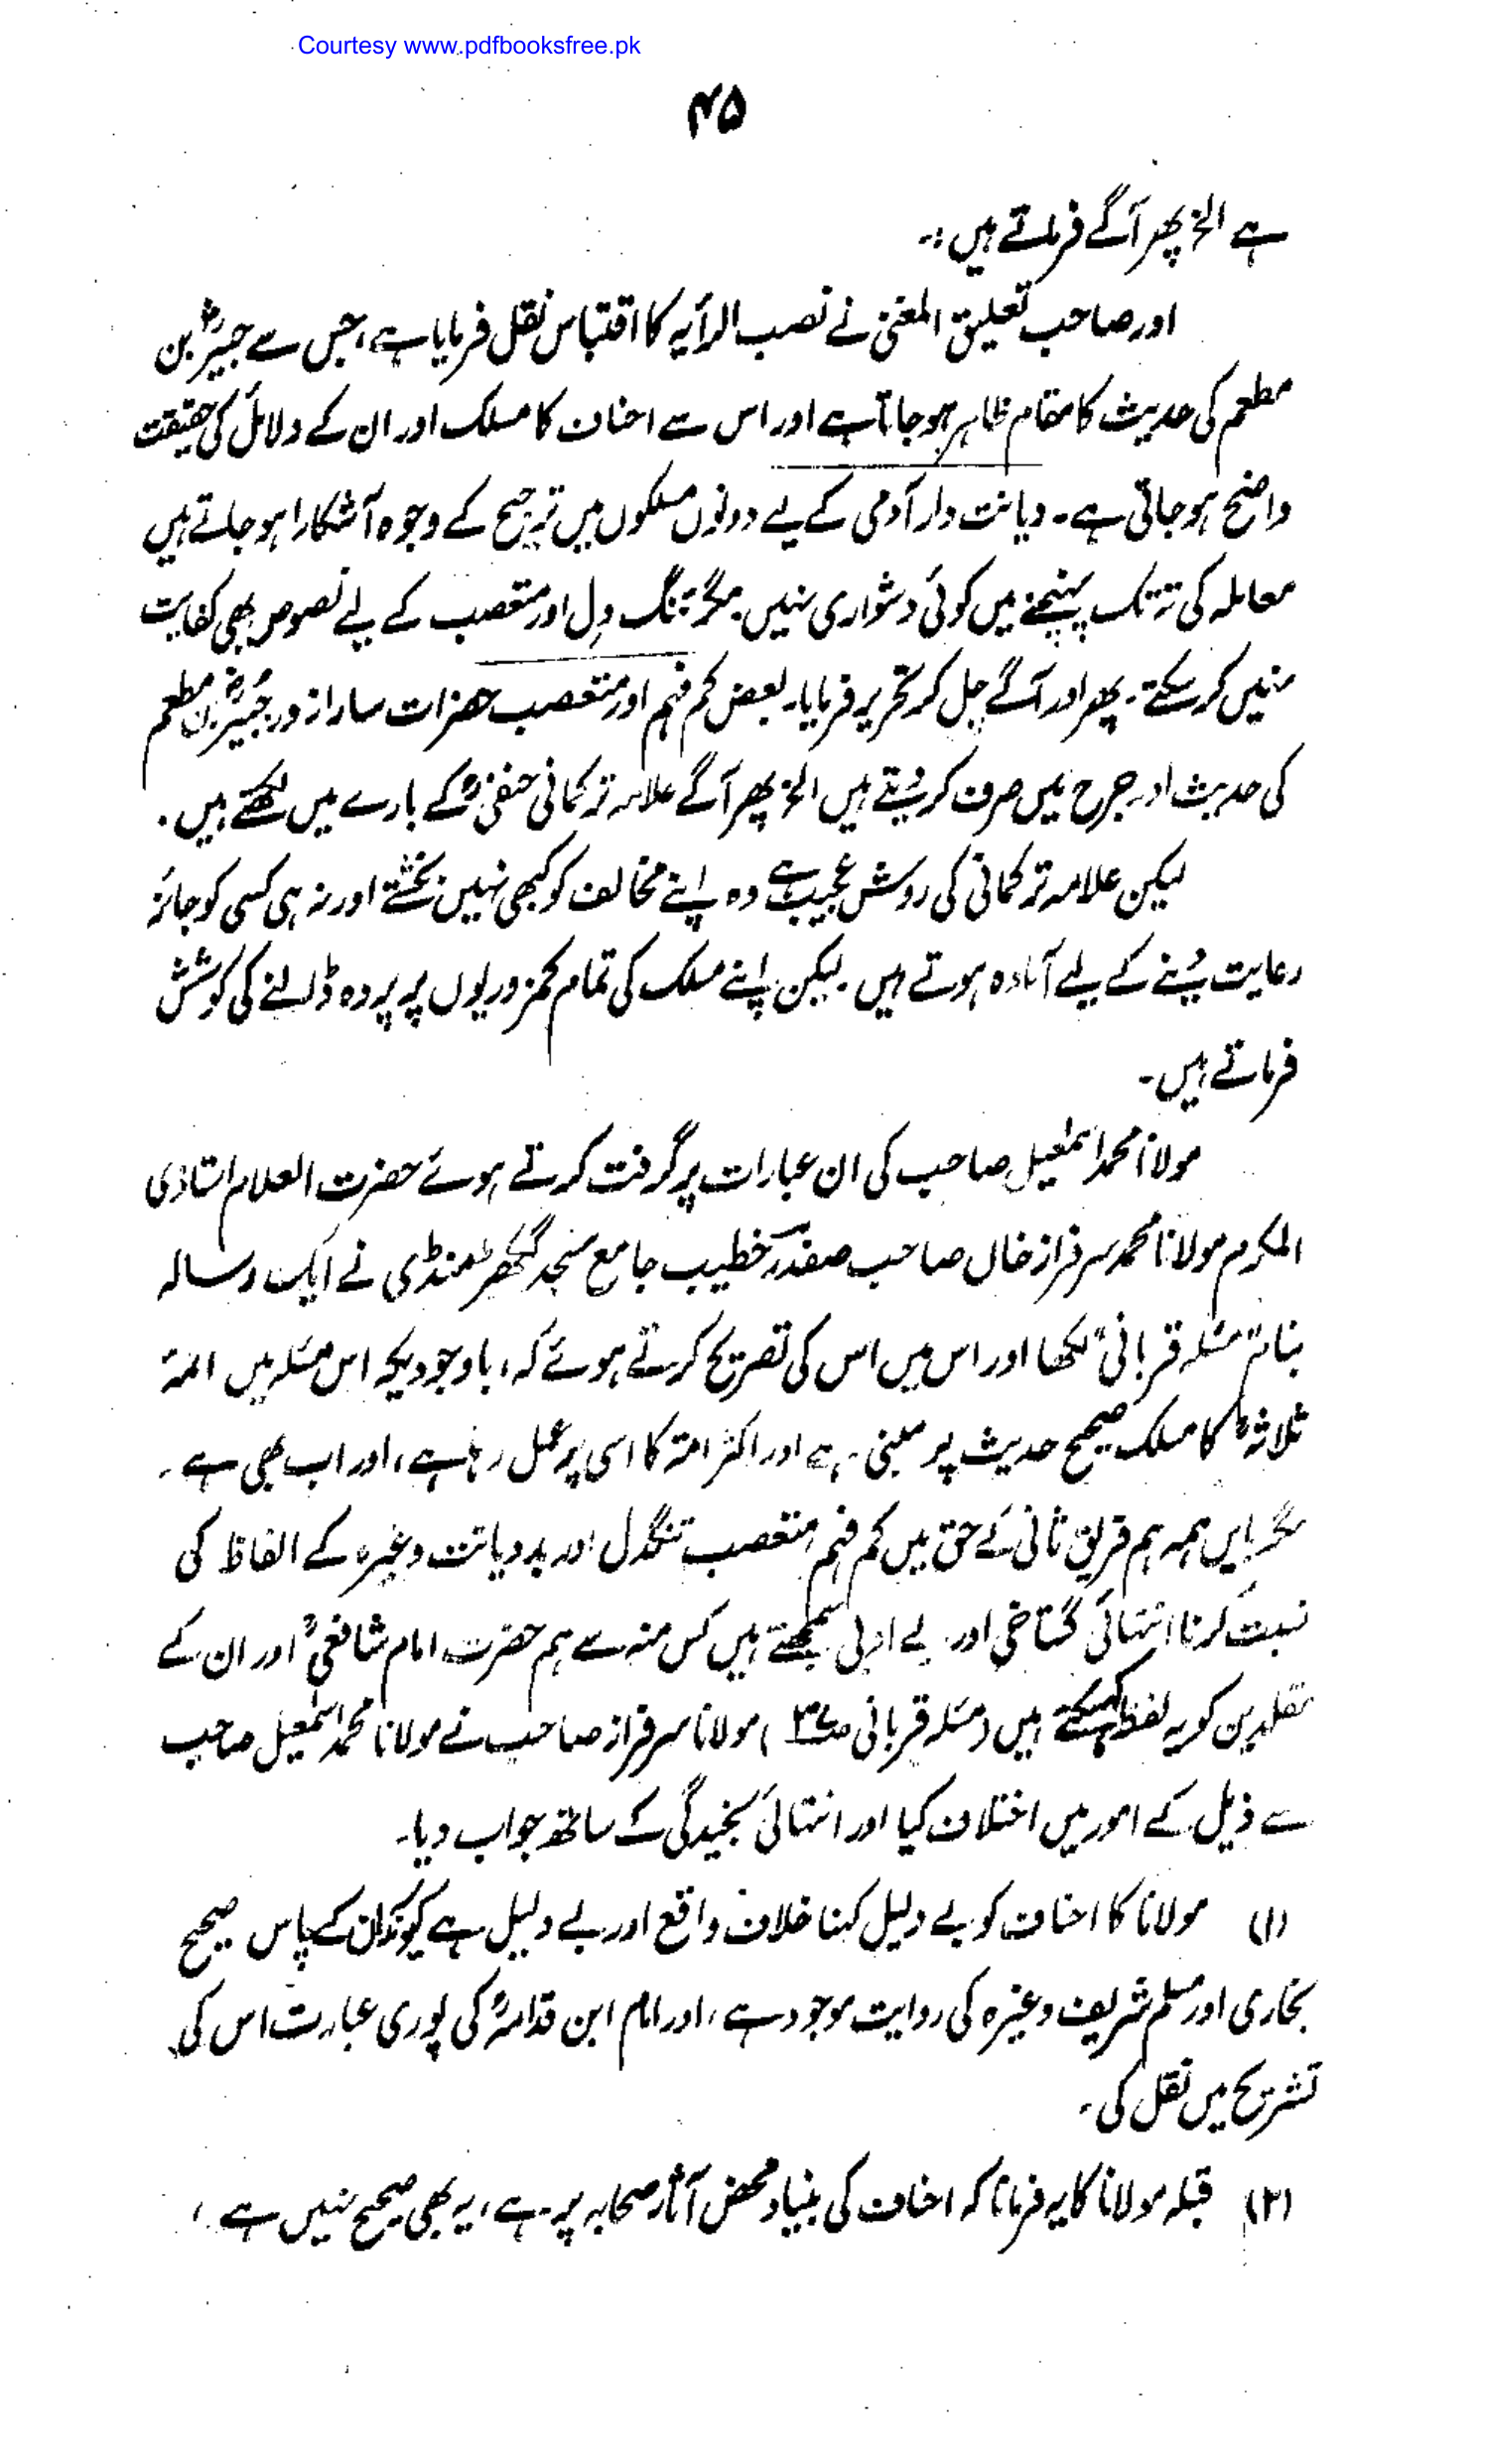 Courtesy www.pdfbooksfree.pk
۴۵
ہے الخ پھر آگے فرماتے ہیں :۔
اور صاحب تعلیق المغنی نے نصب الرأیہ کا اقتباس نقل فرمایا ہے ، جس سے جبیرؓ بن
مطعم کی حدیث کا مقام ظاہر ہوجاتا ہے اور اس سے احناف کا مسلک اور ان کے دلائل کی حقیقت
واضح ہوجاتی ہے ۔ دیانت دار آدمی کے لیے دونوں مسلکوں میں ترجیح کے وجوہ آشکارا ہو جاتے ہیں
معاملہ کی تہ تک پہنچنے میں کوئی دشواری نہیں ۔ مگر تنگ دل اور متعصب کے لیے نصوص بھی کفایت
نہیں کر سکتے ۔ پھر اور آگے چل کر تحریر فرمایا۔ بعض کم فہم اور متعصب حضرات سارا زور جبیرؓ بن مطعم
کی حدیث اور جرح میں صرف کر دیتے ہیں الخ پھر آگے علامہ ترکمانی حنفیؒ کے بارے میں لکھتے ہیں ۔
لیکن علامہ ترکمانی کی روش عجیب ہے وہ اپنے مخالف کو کبھی نہیں بخشتے اور نہ ہی کسی کو جائز
رعایت دینے کے لیے آمادہ ہوتے ہیں ۔ لیکن اپنے مسلک کی تمام کمزوریوں پر پردہ ڈالنے کی کوشش
فرماتے ہیں ۔
مولانا محمد اسمٰعیل صاحب کی ان عبارات پر گرفت کرتے ہوئے حضرت العلام استاذی
المکرم مولانا محمد سرفراز خاں صاحب صفدر خطیب جامع مسجد گکھڑ منڈی نے ایک رسالہ
بنام مسئلہ قربانی" لکھا اور اس میں اس کی تصریح کرتے ہوئے کہ ، باوجودیکہ اس مسئلہ میں ائمۂ
ثلاثہؒ کا مسلک صحیح حدیث پر مبنی ہے اور اکثر امتہ کا اسی پر عمل رہا ہے ، اور اب بھی ہے ۔
مگر بایں ہمہ ہم فریق ثانی کے حق میں کم فہم متعصب تنگدل اور بددیانت وغیرہ کے الفاظ کی
نسبت کرنا انتہائی گستاخی اور بے ادبی سمجھتے ہیں کس منہ سے ہم حضرت امام شافعیؒ اور ان کے
مقلدین کو یہ لفظ کہہ سکتے ہیں (مسئلہ قربانی ) مولانا سرفراز صاحب نے مولانا محمد اسمٰعیل صاحب
سے ذیل کے امور میں اختلاف کیا اور انتہائی سنجیدگی کے ساتھ جواب دیا۔
(۱) مولانا کا احناف کو بے دلیل کہنا خلاف واقع اور بے دلیل ہے کیونکہ ان کے پاس صحیح
بخاری اور مسلم شریف وغیرہ کی روایت موجود ہے ، اور امام ابن قدامہؒ کی پوری عبارت اس کی
تشریح میں نقل کی ۔
(۲) قبلہ مولانا کا یہ فرمانا کہ احناف کی بنیاد محض آثار صحابہ پر ہے ، یہ بھی صحیح نہیں ہے ،